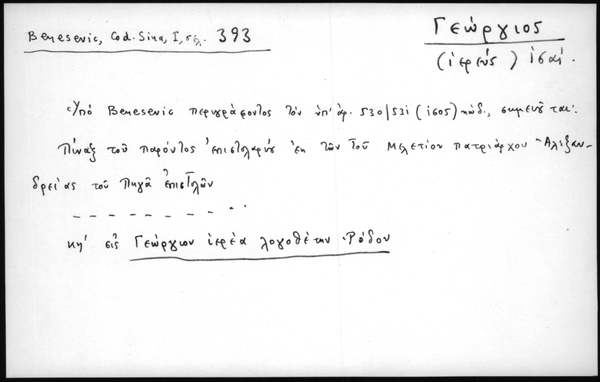 Benesevic, Cod. Sina, I, σελ. 393
Γεώργιος
(ἱερεύς) ισαί.
Ὑπό Benesevic περιγράφοντος τόν ὑπ' ἀρ. 530/531 (1505) κώδ., σημειοῦται:
Πίναξ τοῦ παρόντος ἐπιστολαρίου ἐκ τῶν τοῦ Μελετίου πατριάρχου Ἀλεξαν-
δρείας τοῦ Πηγᾶ ἐπιστολῶν
κη' εἰς Γεώργιον ἱερέα λογοθέτην Ῥόδου